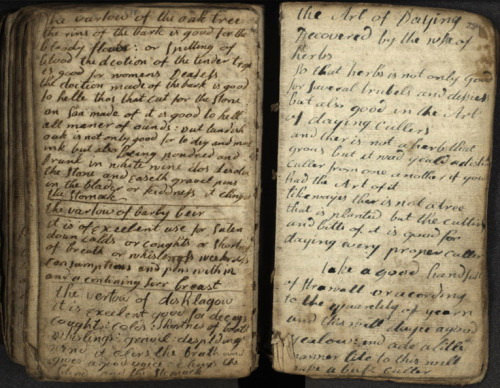 the vartow of the oak tree
the rins of the bark is good for the
bloody floux: or Spilling of
blood the dcotion of the under
is good for womens Deases
the doction made of the bark is good
to helle thos that Cut for the Stone
an Saa made of it is good to hell
all maner of ounds: but
oak is not only good for to dey and mak
ink but also being pondred and
drunk in white wine dos
the Stone and Caseth gravel pins
in the blader or kiddness it
the Stomack
the vartow of barby beir
it is excelent use for
down colds or coughts or Shortnes
of breath or whislings
Consumptions and pins with in
and a Continuing Sorr breast
the vertow of
it is exelent good for decays
coughts: colds: Shortness of breath
whistlings: gravel
it clers the brath and
gives a good voice: clears the
and the Stomack
the Art of Daying
Recovered by the use of
herbs
So that herbs is not only good
for Several trubels and
but also good in the Art
of daying Cullers
and ther is not a herb that
grous but it wad yeald a
Culler from one another if you
had the Art of it
likewayes ther is not a tree
that is planted but the Cuttings
and bitts of it is guud for
daying every proper culler
take a good handfull
of or acording
to the quantety of yearn
and this will daye a good
yealow: and
maner to this will
make a Culler